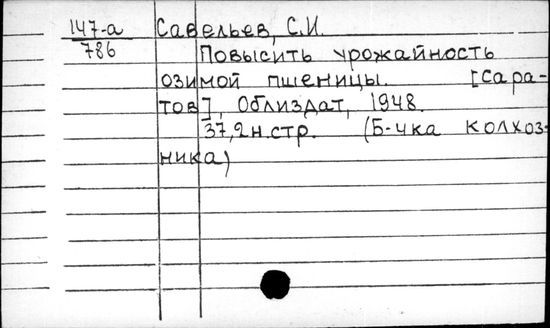 147-а
786
Савельев, С.И.
Повысить урожайность
озимой пшеницы. [Сара-
тов], Облиздат, 1948.
37,2н.стр. (Б-чка колхоз-
ника)